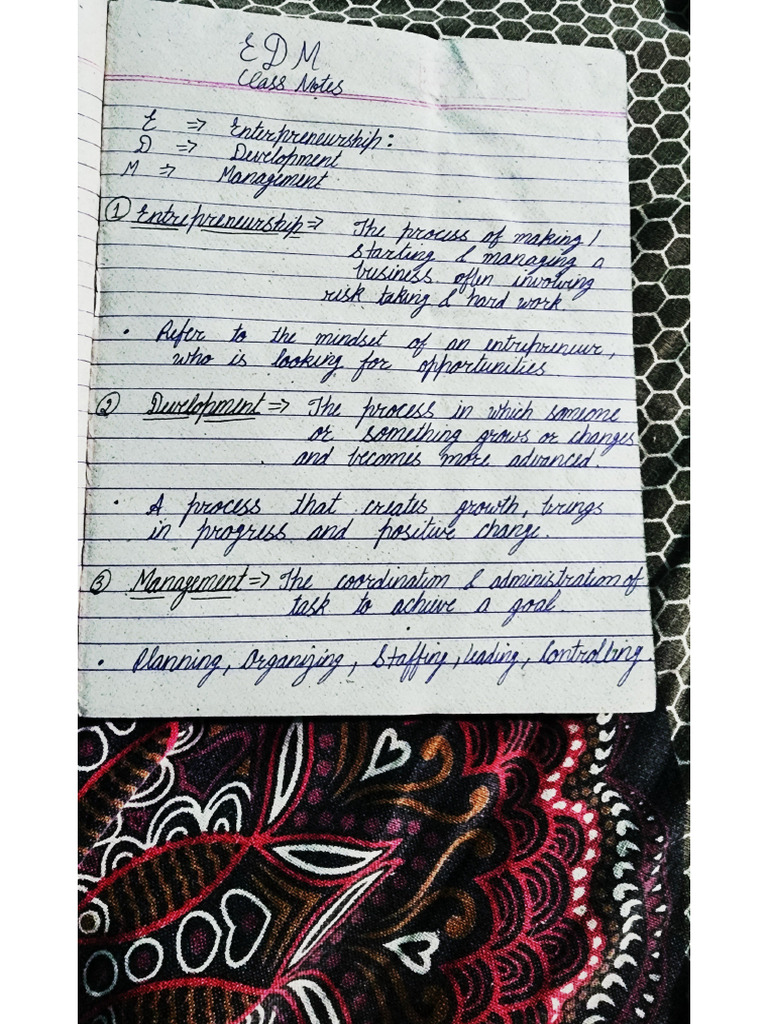 EDM
Class Notes
E => Enterpreneurship:
D => Development
M => Management
① Entrepreneurship => The process of making /
starting & managing a
business often involving
risk taking & hard work.
• Refer to the mindset of an entrepreneur,
who is looking for opportunities
② Development => The process in which someone
or something grows or changes
and becomes more advanced.
• A process that creates growth, brings
in progress and positive change.
③ Management => The coordination & administration of
task to achieve a goal.
• Planning, Organizing, Staffing, Leading, Controlling.